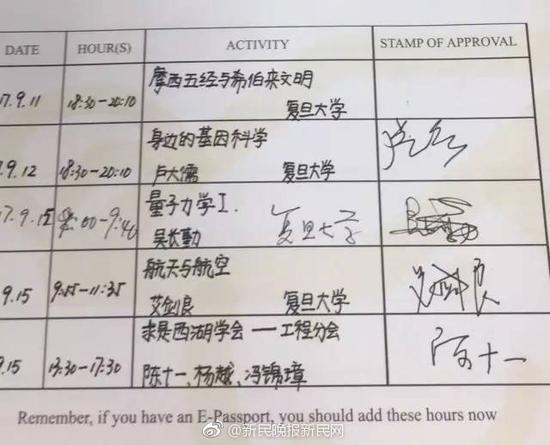 DATE HOUR(S) ACTIVITY STAMP OF APPROVAL
17.9.11 18:30-20:10 摩西五经与希伯来文明
复旦大学
7.9.12 18:30-20:10 身边的基因科学
卢大儒 复旦大学
17.9.15 8:00-9:40 量子力学I.
吴长勤 复旦大学
9.15 9:55-11:35 航天与航空
艾剑良 复旦大学 艾剑良
9.15 13:30-17:30 求是西湖学会——工程分会
陈十一、杨越、冯锦璋 陈十一
Remember, if you have an E-Passport, you should add these hours now
@新民晚报新民网